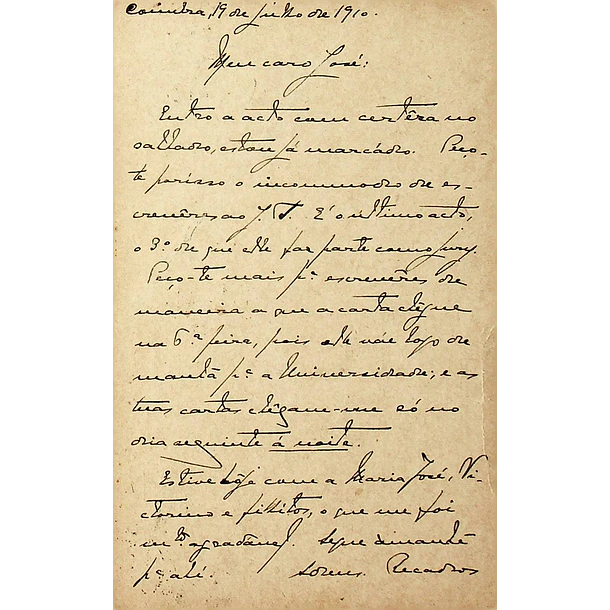 Coimbra, 19 de julho de 1910.
Meu caro José:
Entro a acto com certêza no
sabbado, estou já marcádo. Peço-
te porisso o incommodro de es-
crevêres ao J. T. É o ultimo acto,
o 3.º de que elle faz parte como jury.
Peço-te mais p.ª escrevêres de
maneira a que a carta chêgue
na 6.ª feira, pois elle vae logo de
manhã p.ª a Universidade; e as
tuas cartas chêgam-me só no
dia seguinte á noite.
Estive hoje com a Maria José, Vi-
ctorino e filhitos, o que me foi
m.to agradavel. Segue ámanhã
p.ª ahi. Recados